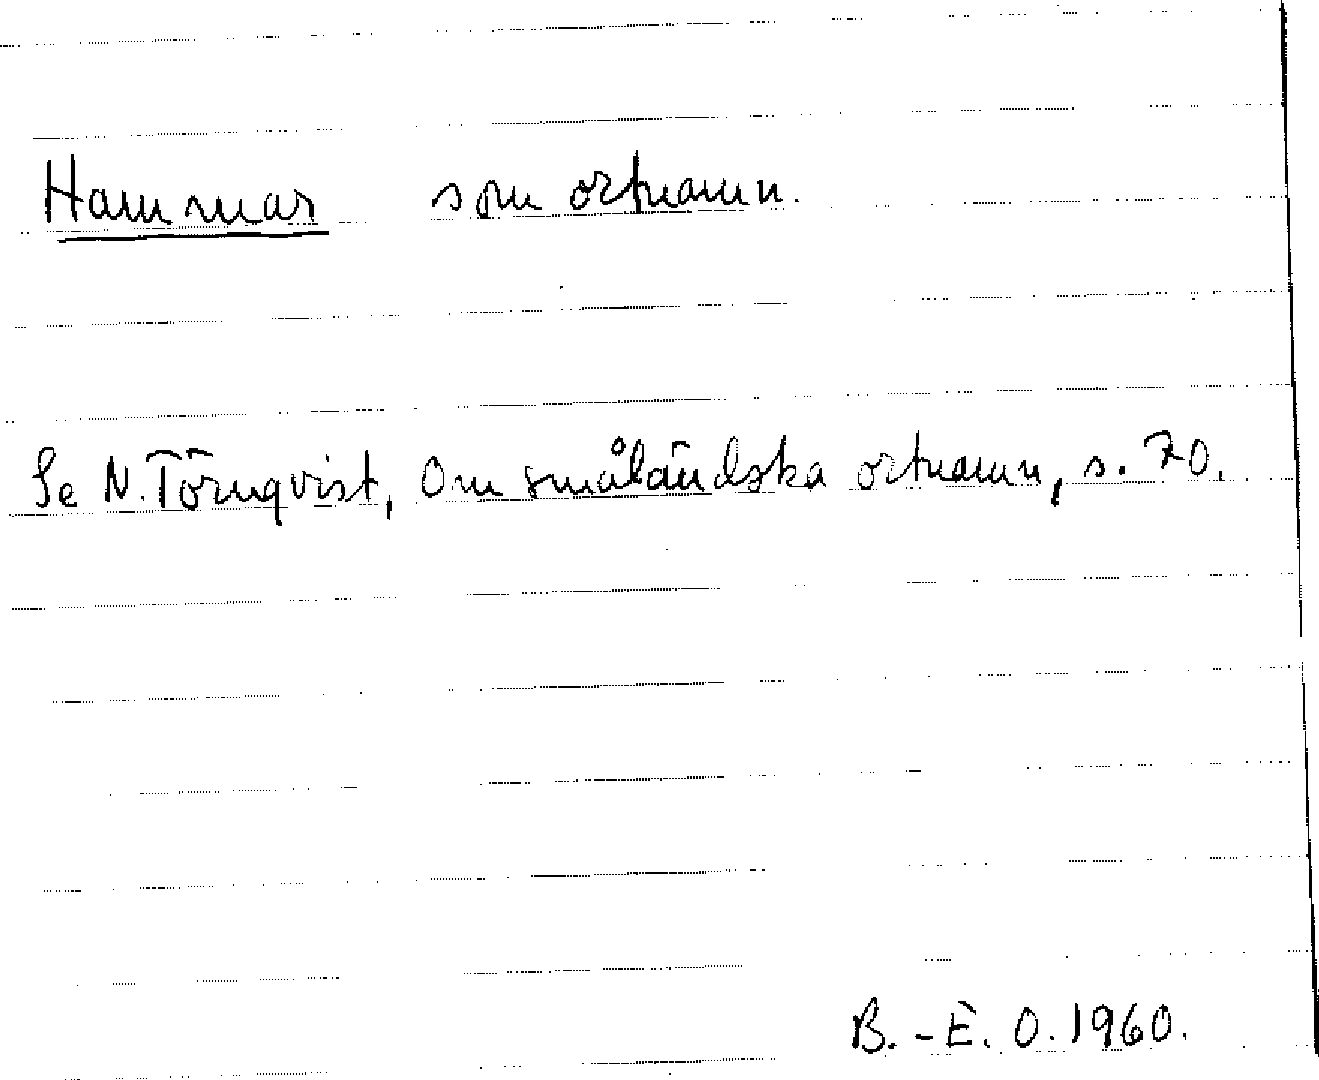 Hammar som ortnamn.
Se N. Törnqvist, Om småländska ortnamn, s. 70.
B.-E. O. 1960.